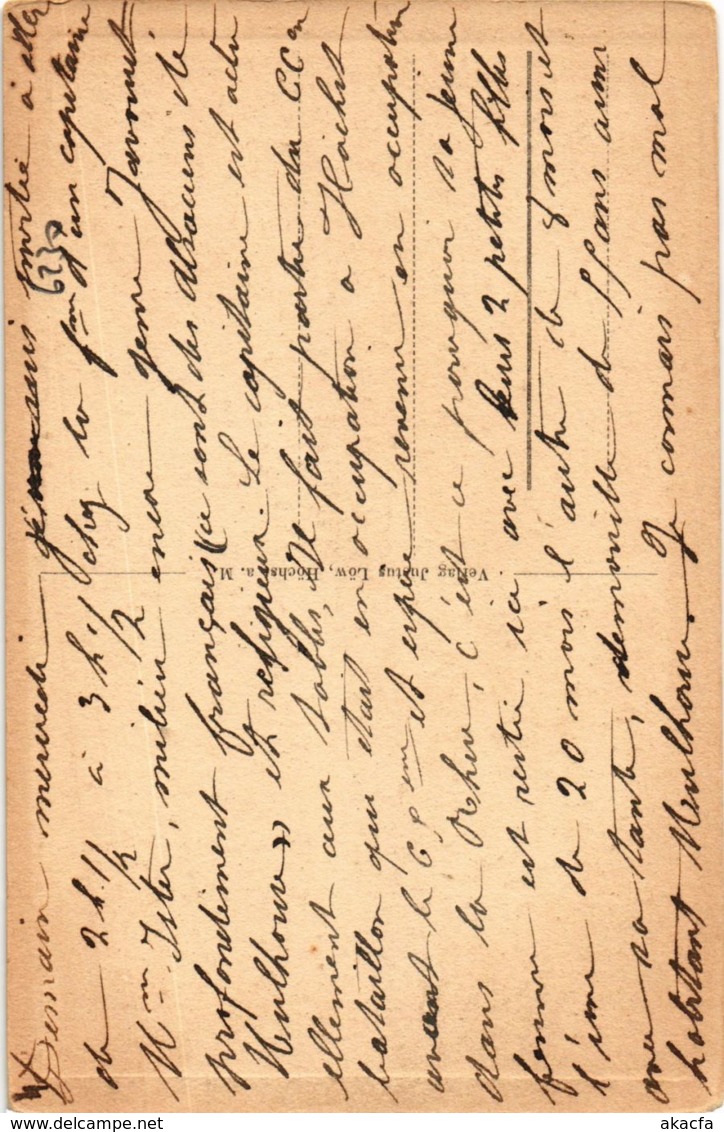 4x
Demain mercredi je suis invitée à aller
de 2 h. 1/2 à 3 h. 1/2 chez la fme d'un capitaine
Mme Ister, milieu encore genre Javouret
profondément français (ce sont des alsaciens de
Mulhouse) et religieux. Le capitaine est actu
ellement aux sables, il fait partie du CCème
bataillon qui était en occupation à Höchst
avant le et espère revenir en occupation
dans la Rhur, c'est ce pourquoi sa jeune
femme est restée ici avec leurs 2 petites filles
l'une de 20 mois l'autre de 8 mois et
avec sa tante, demoiselle de ans
habitant Mulhouse. Je connais pas mal
6230
Verlag Justus Löw, Höchst a. M.
akacfa
www.delcampe.net